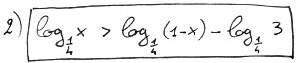 2) log_{1/4} x > log_{1/4} (1-x) - log_{1/4} 3